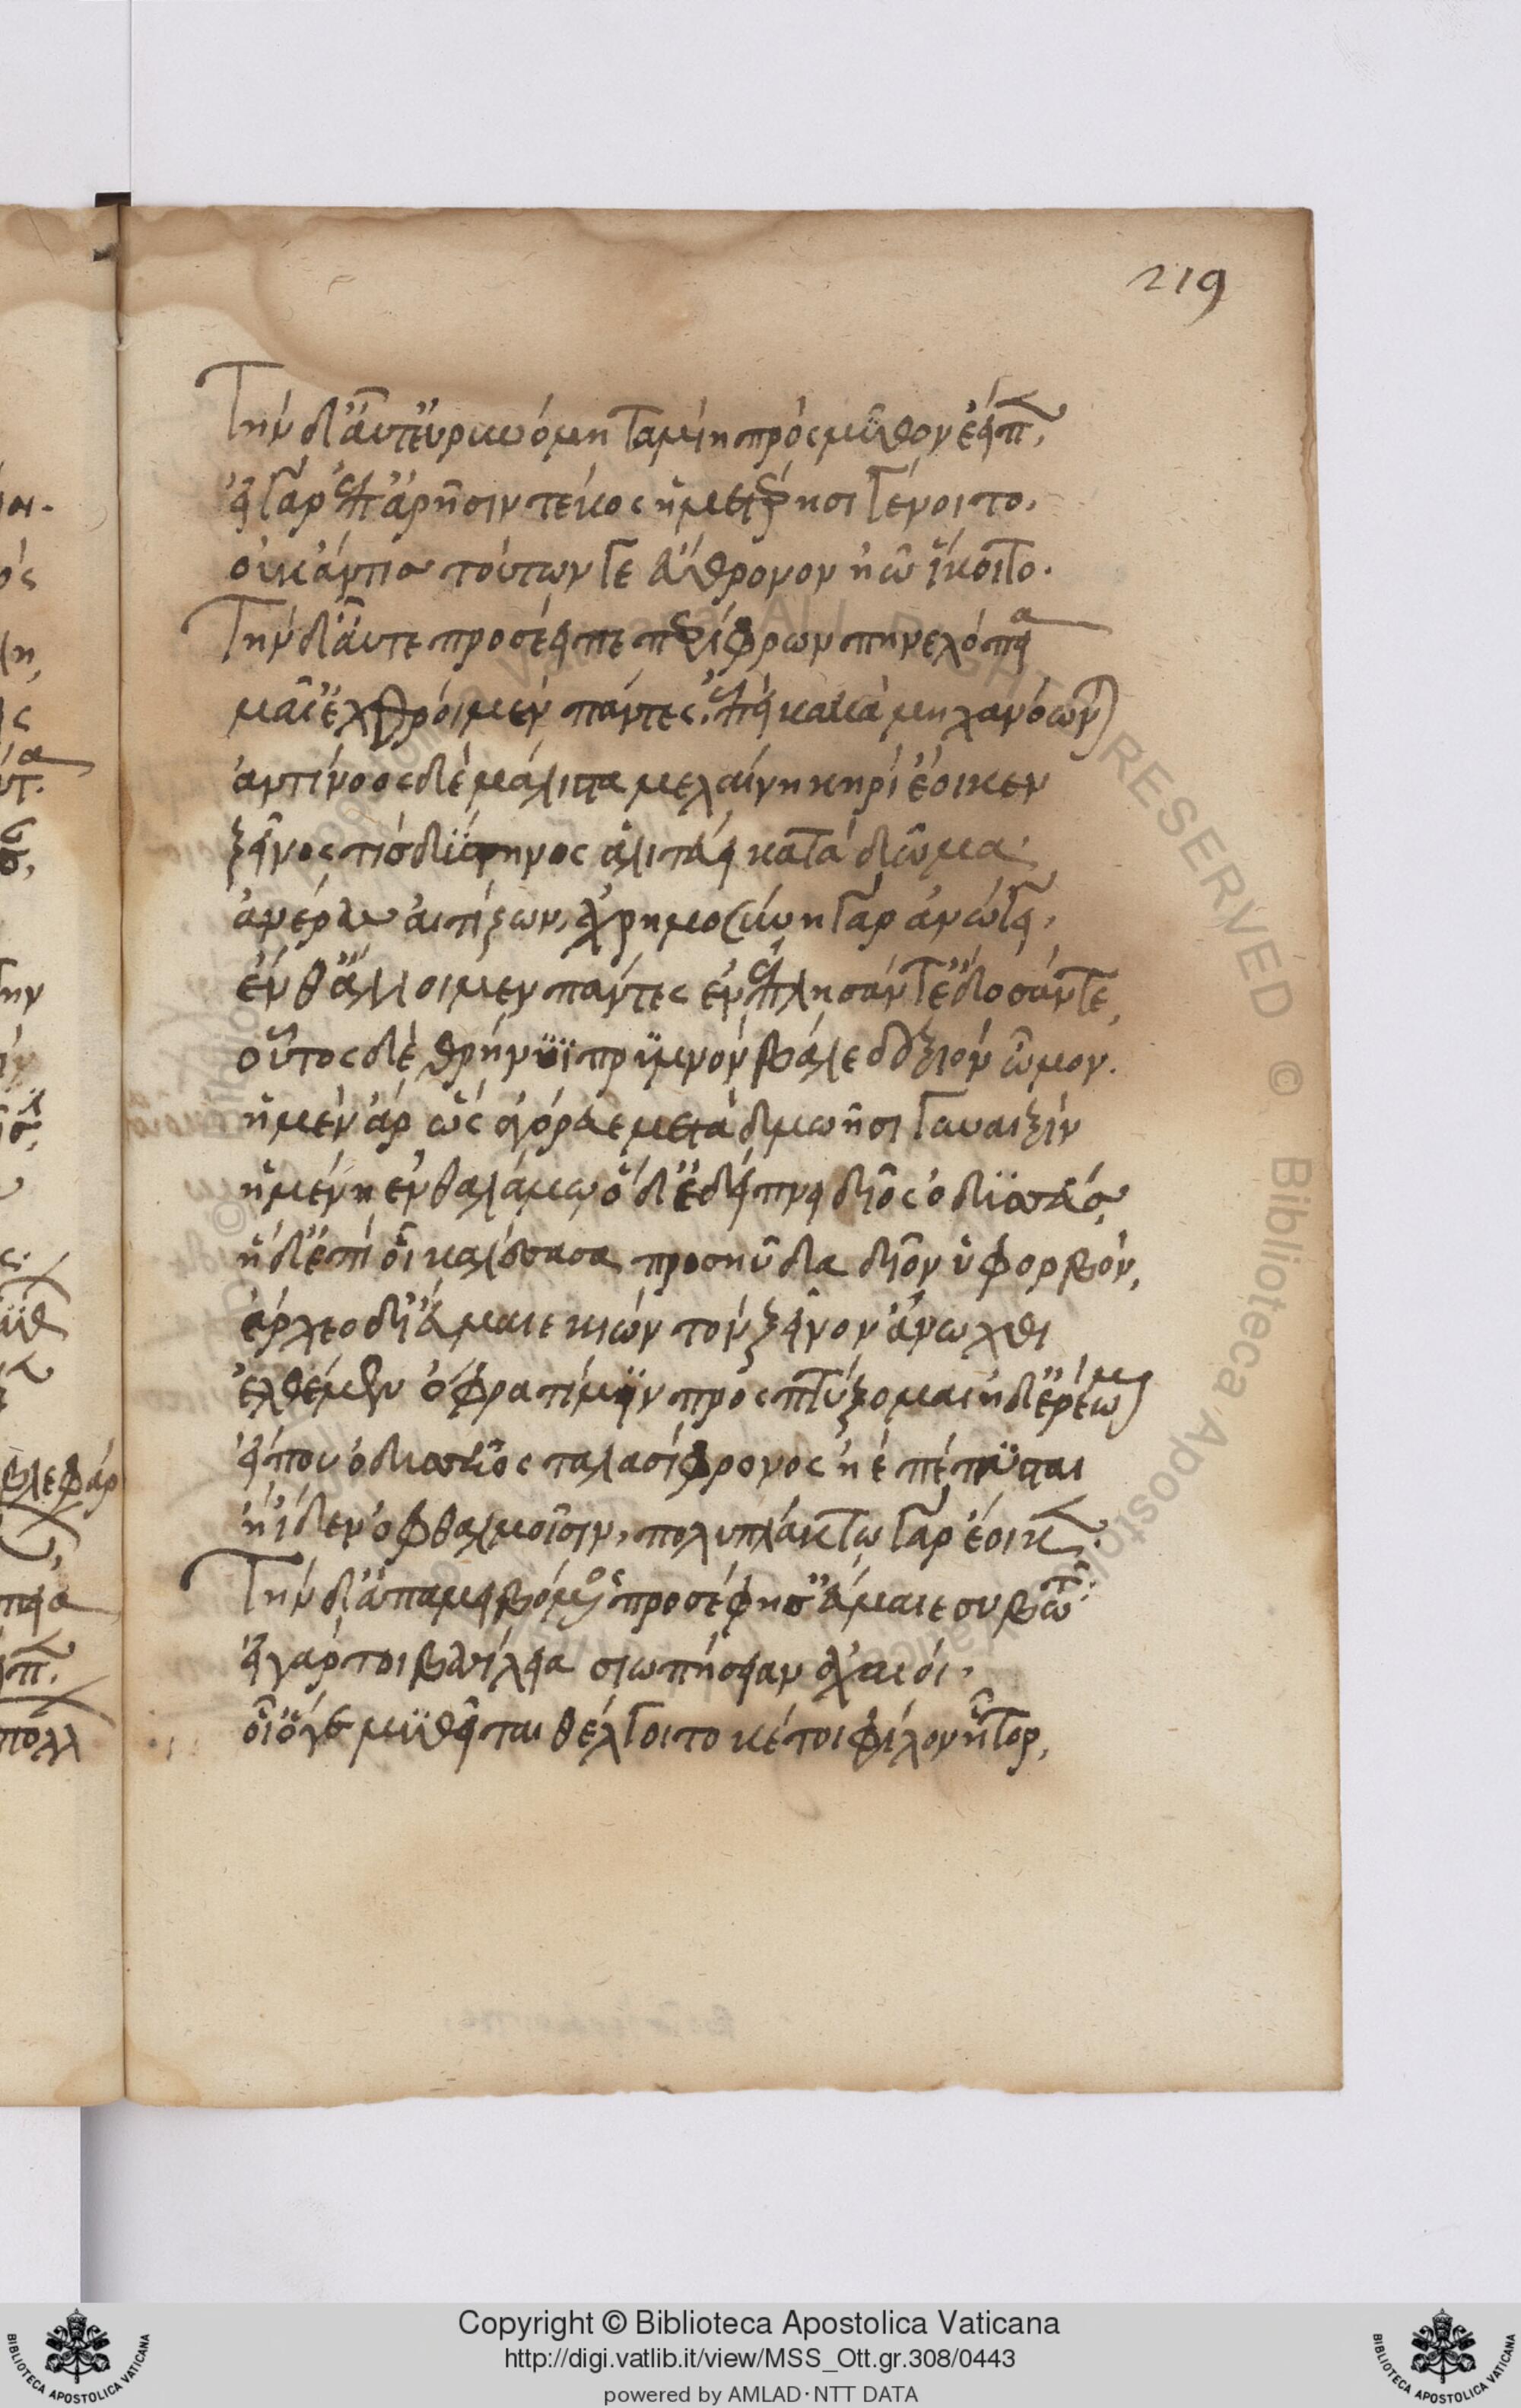 219
Τὴν δ' αὖτ' εὐρυνόμη ταμίη πρὸς μῦθον ἔειπ
εἰ γὰρ ἐπ' ἀρῆσιν τέκος ἡμετέρησι γένοιτο.
οὐκ ἄν τις τούτων γε ἐΰθρονον ἠῶ ἵκοιτο.
Τὴν δ' αὖτε προσέειπε περίφρων πηνελόπεια
μαῖ' ἐχθροὶ μὲν πάντες, ἐπεὶ κακὰ μηχανόων
ἀντίνοος δὲ μάλιστα μελαίνη κηρὶ ἔοικεν
ξεῖνός τις δύστηνος ἀλιτεύει κατὰ δῶμα.
ἀνέρας αἰτίζων, ἀχρημοσύνη γὰρ ἀνώγει.
ἔνθ' ἄλλοι μὲν πάντες ἐνέπλησάν τ' ἔδοσάν τε,
οὗτος δὲ θρήνυϊ πρυμνὸν βάλε δεξιὸν ὦμον.
ἡ μὲν ἄρ' ὣς ἀγόρευε μετὰ δμωῆσι γυναιξὶν
ἡμένη ἐν θαλάμω ὁ δ' ἐδείπνει δῖος ὀδυσσεύς,
ἡ δ' ἐπὶ οἷ καλέσασα προσηύδα δῖον ὑφορβόν,
ἔρχεο δῖ' εὔμαιε κιὼν τὸν ξεῖνον ἄνωχθι
ἐλθέμεν ὄφρα τί μιν προσπτύξομαι ἠδ' ἐρέωμ
εἴ που ὀδυσσῆος ταλασίφρονος ἠὲ πέπυσται
ἢ ἴδεν ὀφθαλμοῖσιν, πολυπλάκτω γὰρ ἔοικεν.
Τὴν δ' ἀπαμειβόμενος προσέφης εὔμαιε συβῶτα.
εἰ γάρ τοι βασίλεια σιωπήσειαν ἀχαιοί,
οἷ' ὅγε μυθεῖται θέλγοιτό κέ τοι φίλον ἦτορ,
Copyright © Biblioteca Apostolica Vaticana
http://digi.vatlib.it/view/MSS_Ott.gr.308/0443
powered by AMLAD·NTT DATA